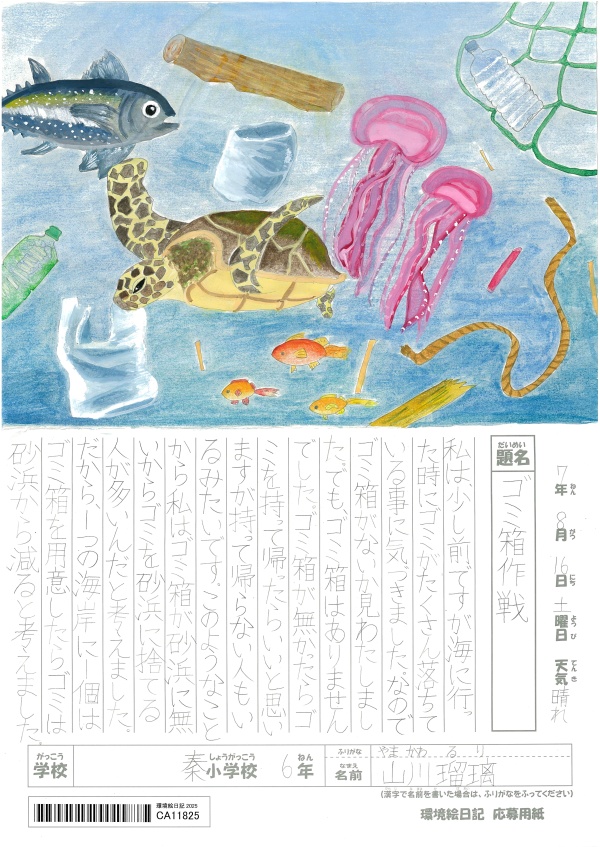 7年 8月 16日 土曜日 天気 晴れ
ねん がつ にち ようび てんき
だいめい
題名 ゴミ箱作戦
私は、少し前ですが海に行っ
た時にゴミがたくさん落ちて
いる事に気づきました。なので
ゴミ箱がないか見わたしまし
た。でも、ゴミ箱はありません
でした。ゴミ箱が無かったらゴ
ミを持って帰ったらいいと思い
ますが持って帰らない人もい
るみたいです。このようなこと
から私はゴミ箱が砂浜に無
いからゴミを砂浜に捨てる
人が多いんだと考えました。
だから、一つの海岸に一個は
ゴミ箱を用意したらゴミは
砂浜から減ると考えました。
がっこう しょうがっこう ねん
学校 秦小学校 6年
ふりがな やまかわ るり
なまえ
名前 山川瑠璃
(漢字で名前を書いた場合は、ふりがなをふってください)
環境絵日記 2025
CA11825
環境絵日記 応募用紙